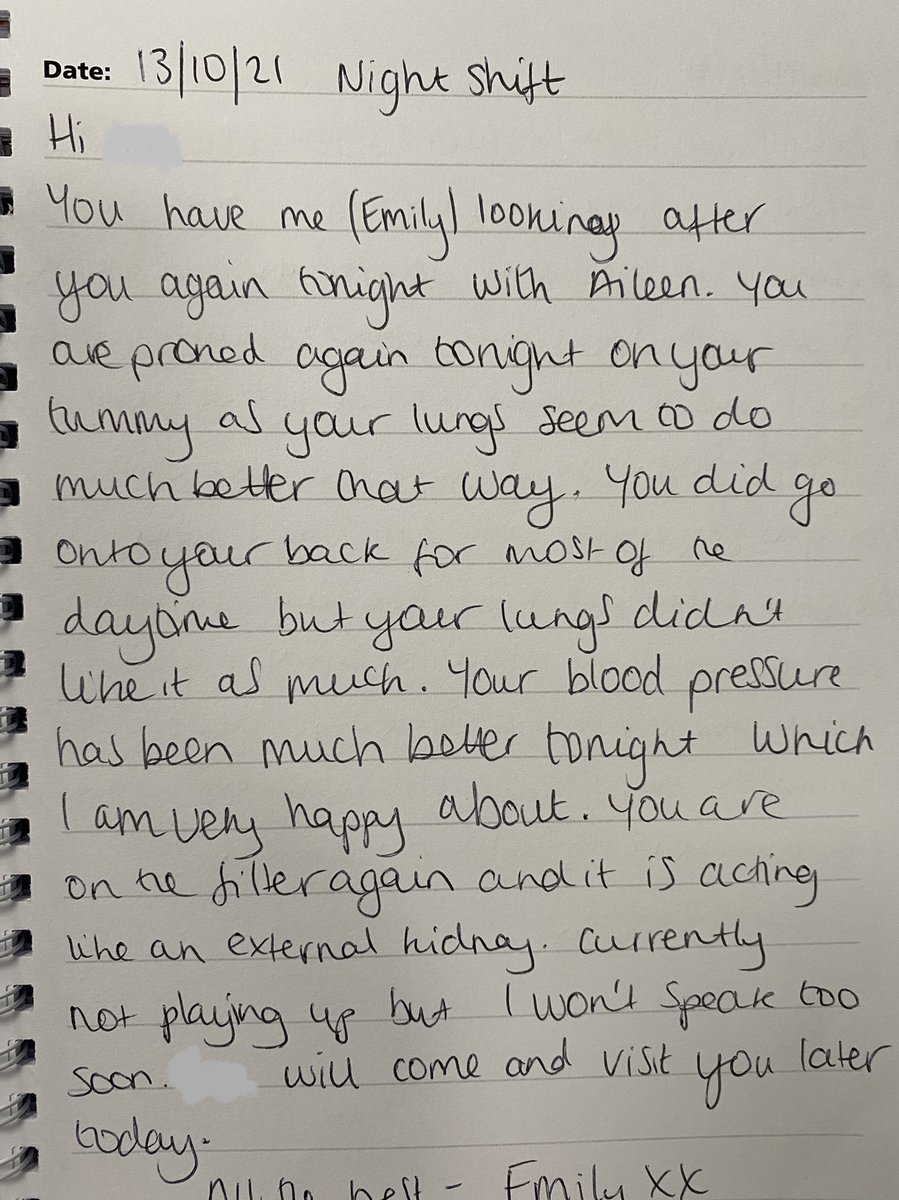 Date: 13/10/21 Night Shift
Hi
You have me (Emily) looking after
you again tonight with Aileen. You
are proned again tonight on your
tummy as your lungs seem to do
much better that way. You did go
onto your back for most of the
daytime but your lungs didn't
like it as much. Your blood pressure
has been much better tonight which
I am very happy about. You are
on the filter again and it is acting
like an external kidney. Currently
not playing up but I won't speak too
soon. will come and visit you later
today.
All the best - Emily XX